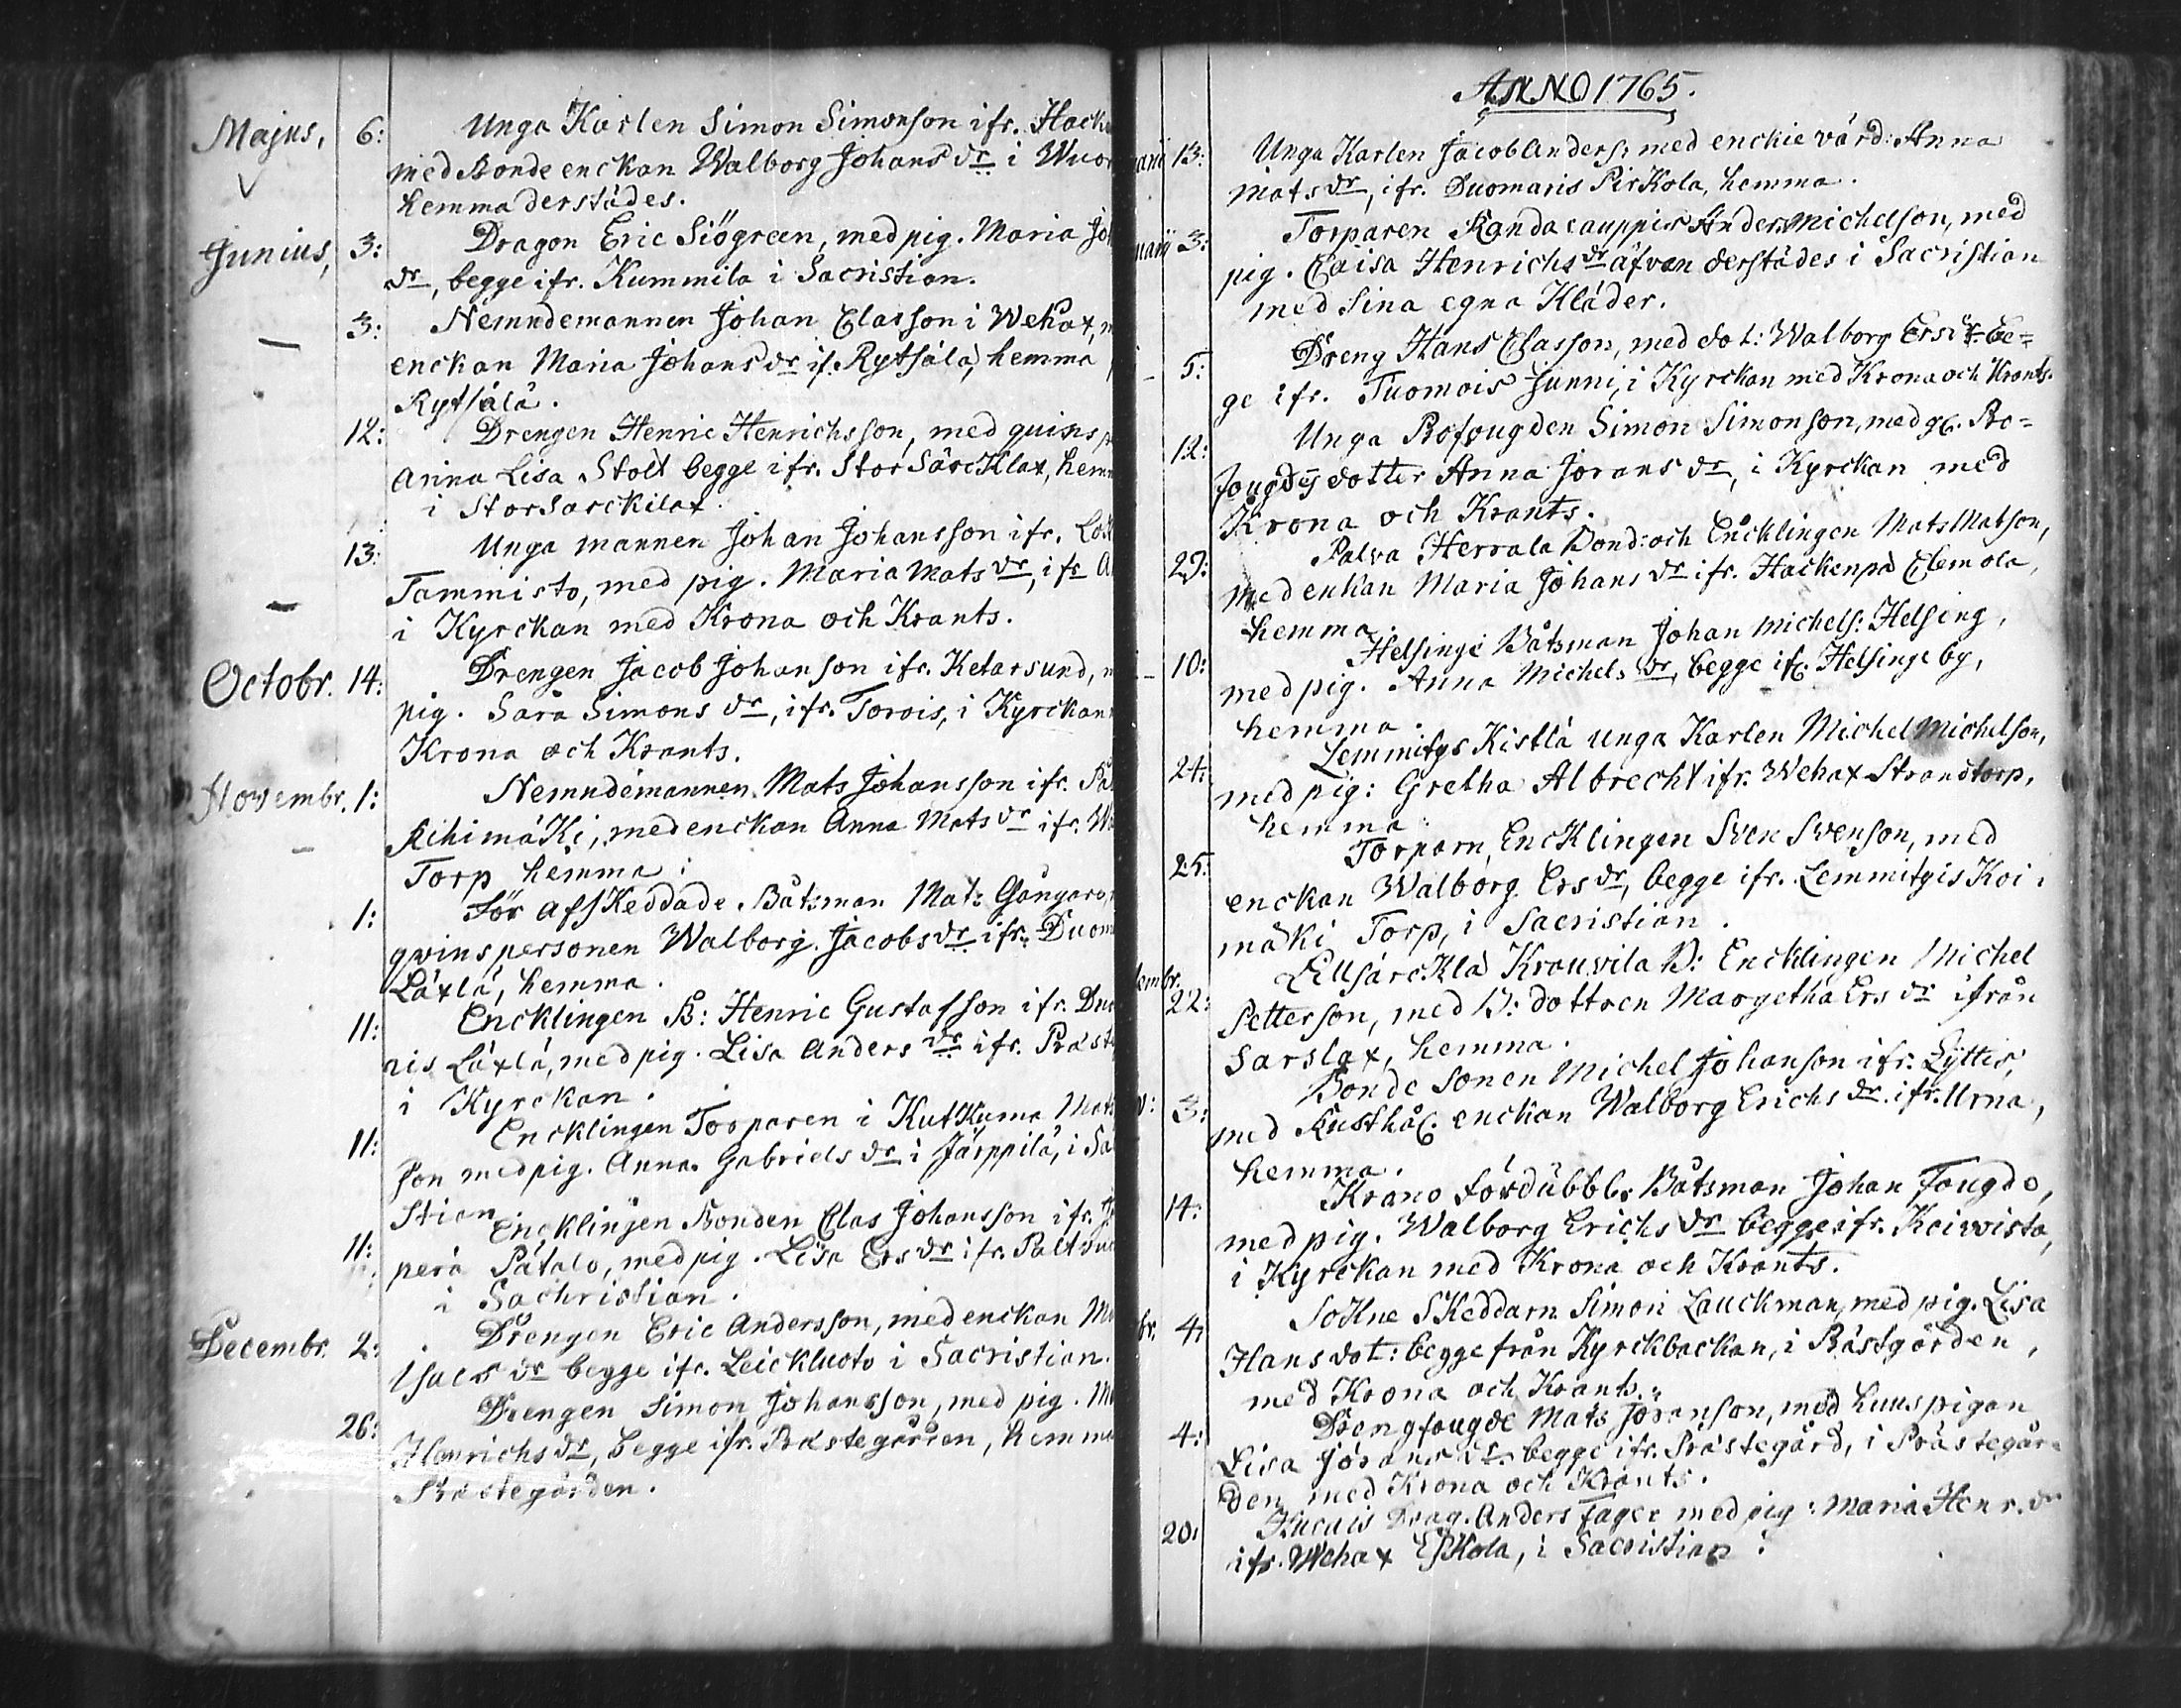 Majus, 6: Unga Karlen Simon Simonson ifr. Hacke
med Bonde enckan Walborg Johans dr i Wuor
hemma derstädes.
Junius, 3: Dragon Eric Siögreen, med pig. Maria Joh
dr, begge ifr. Kummila i Sacristian.
3: Nemndemannen Johan Classon i Wehax, m
enckan Maria Johans dr if. Rytsälä, hemma
Rytsälä.
12: Drengen Henric Henrichsson, med quins
Anna Lisa Stolt begge ifr. StorSärcKlax, hem
i StorSarckilax.
13: Unga mannen Johan Johansson ifr.
Tammisto, med pig. Maria Mats dr, ifr
i Kyrckan med Krona och Krants.
Octobr. 14: Drengen Jacob Johanson ifr. Ketarsund, m
pig. Sara Simons dr, ifr. Torois, i Kyrckan
Krona och Krants.
Novembr. 1: Nemndemannen Mats Johansson ifr. Pa
Rihimäki, med enckan Anna Mats dr ifr. W
Torp hemma:
1: För afsKeddade Båtsman Mats Gångare,
qvins personen Walborg Jacobs dr ifr. Duom
Läxlä, hemma.
11: Encklingen B: Henric Gustafsson ifr. Duo
ris Läxlä, med pig. Lisa Anders dr ifr. Präst
i Kyrckan.
11: Encklingen Torparen i KutKuma Mats
son med pig. Anna Gabriels dr i Järppilä, i Sa
Stian
11: Encklingen Bonden Clas Johansson ifr.
perä Pätalo, med pig. Lisa Ers dr ifr. Paltvuo
i Sachristian.
Decembr. 2: Drengen Eric Andersson, med enckan M
Isacs dr begge ifr. Leickluoto i Sacristian.
26: Drengen Simon Johansson, med pig. M
Henrichs dr, begge ifr. Prästegården, hemma
Prästegården.
ANNO 1765.
13: Unga Karlen Jacob Anders: med enckie värd: Anna
Mats dr, ifr. Duomaris PirKola, hemma.
3: Torparen Randacauppis Anders Michelson, med
pig. Caisa Henrichs dr äfven derstädes i Sacristian
med Sina egna Kläder.
5: Dreng Hans Classon, med dot: Walborg Ers dr be=
ge ifr. Tuomois Junni, i Kyrckan med Krona och Krants.
12: Unga Rofougden Simon Simonson, med gl. Ro=
fougdes dotter Anna Jörans dr, i Kyrckan med
Krona och Krants.
29: Palva Herrala Bond: och Encklingen Mats Matson,
med enkan Maria Johans dr ifr. Hackenpä Clemola,
hemma.
10: Helsinge Båtsman Johan Michels: Helsing,
med pig. Anna Michels dr, begge ifr. Helsinge by,
hemma.
24: Lemmitys Kistlä unga Karlen Michel Michelson,
med pig: Gretha Albrecht ifr. Wehax Strandtorp,
hemma.
25: Torparn, EncKlingen Sven Svenson, med
enckan Walborg Ers dr, begge ifr. Lemmitgis Koi
mäki Torp, i Sacristian.
embr. 22: LillsärcKla Krouvila B: Encklingen Michel
Petterson, med B: dottren Margetha Ers dr ifrån
Sarslax, hemma.
3: Bonde Sonen Michel Johanson ifr. Lyttis,
med Rusthål. enckan Walborg Erichs dr ifr. Urna,
hemma.
14: Krono fördubbl. Båtsman Johan Fougde,
med pig. Walborg Erichs dr begge ifr. Keivvista,
i Kyrckan med Krona och Krants.
br. 4: SoKne SKeddarn Simon Lauckman, med pig. Lisa
Hans dot: begge från Kyrckbackan, i Prästgården,
med Krona och Krants.
4: Drengfougde Mats Joranson, med huuspigan
Lisa Jörans dr begge ifr. Prästegård, i Prästegår=
den med Krona och Krants.
20: Kucuis Drag. Anders Fager med pig: Maria Henr. dr
ifr. Wehax EsKola, i Sacristian: